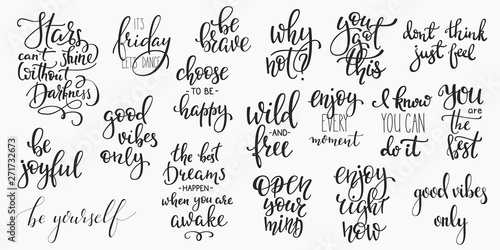 Stars
can't shine
without
Darkness
IT'S
friday
LET'S DANCE
be
brave
choose
- TO BE -
happy
why
not?
you
got
this
don't think
just feel
be
joyful
good
vibes
only
the best
Dreams
- HAPPEN -
when you are
awake
wild
- AND -
free
enjoy
EVERY
moment
I know
YOU CAN
do it
you
are
the
best
be yourself
open
your
mind
enjoy
right
now
good vibes
only
Adobe Stock | #271732673